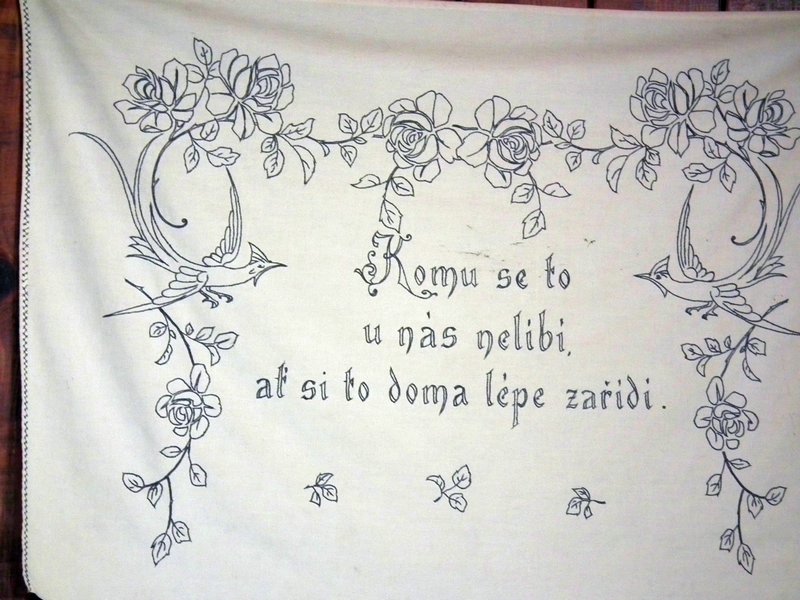 Komu se to
u nás nelibi,
ať si to doma lépe zařidi.